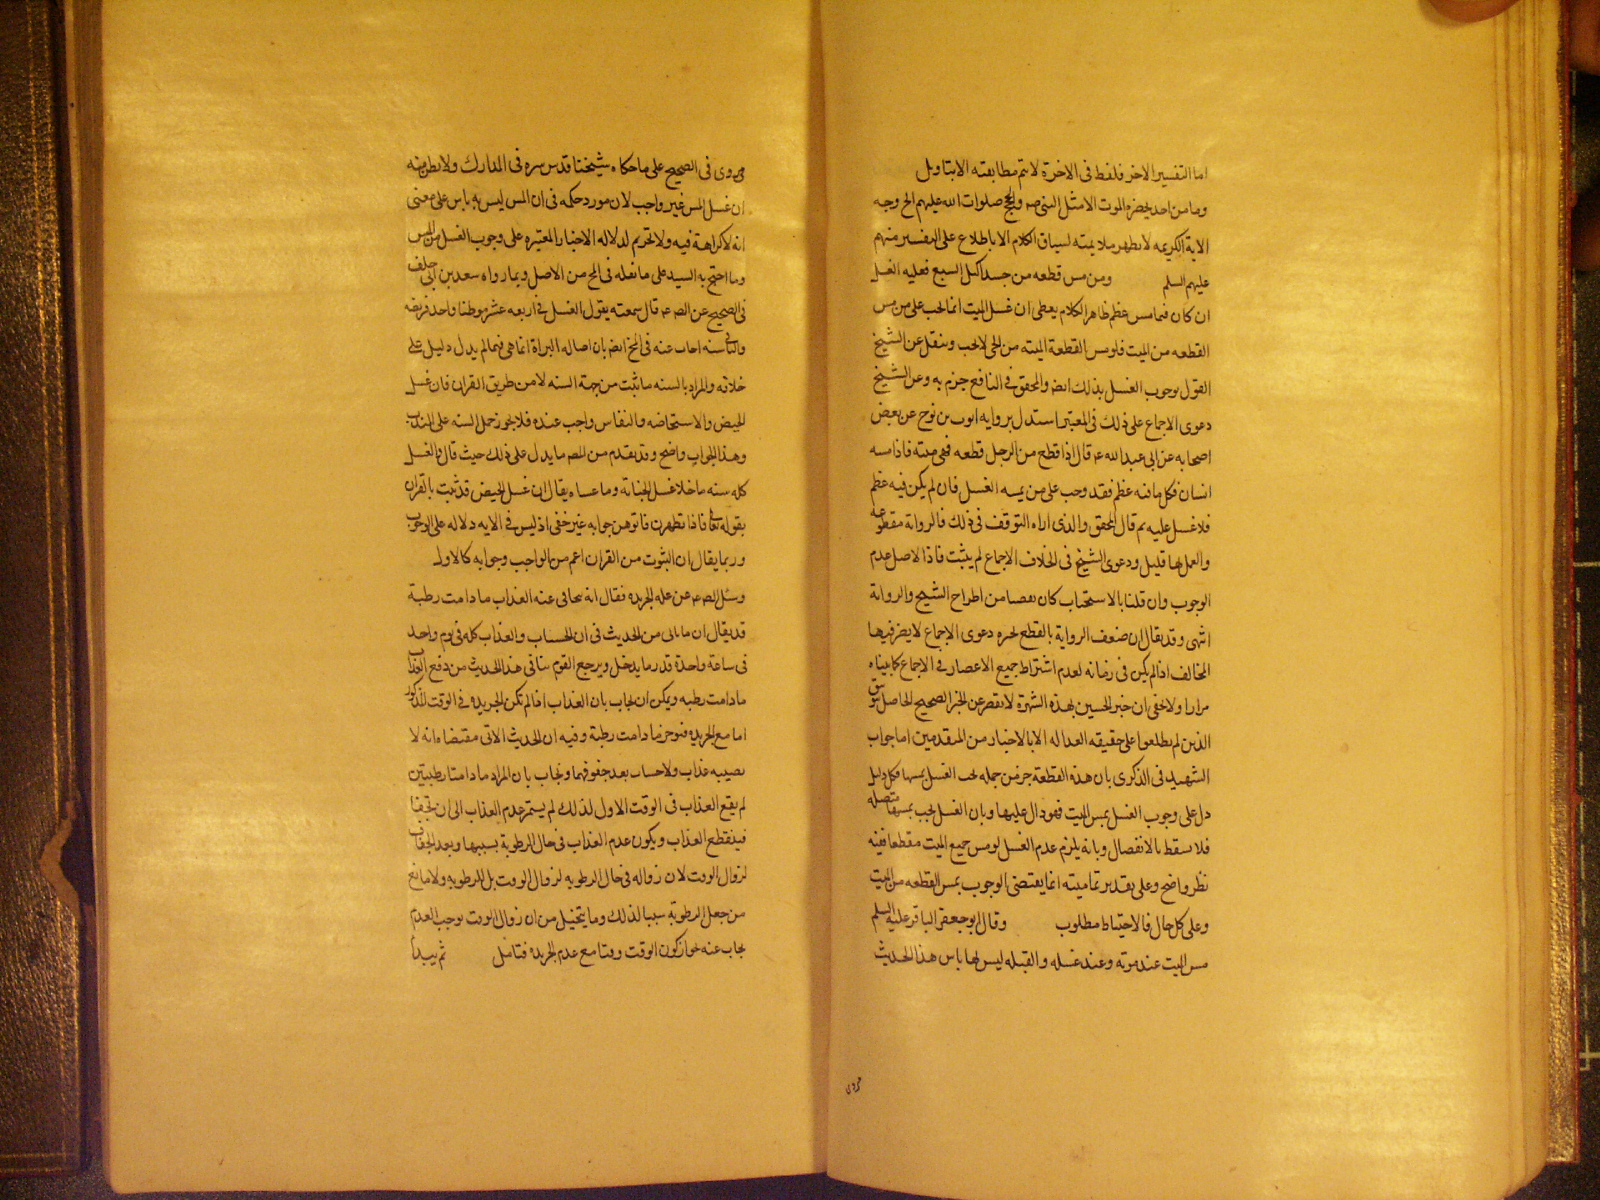 اما التفسير الاخر فلفظ فى الاخرة لا يتم مطابقته الا بتاويل
وما من احد يحضره الموت الا مثل النبى ص والحجج صلوات الله عليهم الخ وجه
الاية الكريمه لا يظهر ملايمته لسياق الكلام الا باطلاع على التفسير منهم
عليهم السلم ومن مس قطعه من جسد اكيل السبع فعليه الغسل
ان كان فيما مس عظم ظاهر الكلام يعطى ان غسل الميت انما يجب على من مس
القطعه من الميت فلو مس القطعة المبينه من الحى لا يجب وينقل عن الشيخ
القول بوجوب الغسل بذلك ايض والمحقق فى النافع جزم به وعن الشيخ
دعوى الاجماع على ذلك فى المعتبر استدل برواية ايوب بن نوح عن بعض
اصحابه عن ابى عبد الله ع قال اذا قطع من الرجل قطعه فهى ميتة فاذا مسه
انسان فكل ما فيه عظم فقد وجب على من يمسه الغسل فان لم يكن فيه عظم
فلا غسل عليه ثم قال المحقق والذى اراه التوقف فى ذلك فالرواية مقطوعه
والعمل بها قليل ودعوى الشيخ فى الخلاف الاجماع لم يثبت فاذا الاصل عدم
الوجوب وان قلنا بالاستحباب كان تفصيا من اطراح الشيخ والرواية
انتهى وقد يقال ان ضعف الرواية بالقطع يجبره دعوى الاجماع لا يضر فيها
المخالف اذا لم يكن فى زمانه لعدم اشتراط جميع الاعصار فى الاجماع كما بيناه
مرارا ولا يخفى ان خبر الحسين بهذه الشهرة لا يقصر عن الخبر الصحيح الحاصل توثيق
الذين لم يطلعوا على حقيقه العداله الا بالاخبار من المتقدمين اما جواب
الشهيد فى الذكرى بان هذه القطعة جزء من جمله يجب الغسل بمسها فكل دليل
دل على وجوب الغسل بمس الميت فهو دال عليها وبان الغسل يجب بمسها متصله
فلا يسقط بالانفصال وبانه يلزم عدم الغسل لو مس جميع الميت مقطعا ففيه
نظر واضح وعلى تقدير تماميته انما يقتضى الوجوب بمس القطعه من الميت
وعلى كل حال فالاحتياط مطلوب وقال ابو جعفر الباقر عليه السلم
مس الميت عند موته وعند غسله والقبله ليس لها باس هذا الحديث
مروى
مروى فى الصحيح على ما حكاه شيخنا قدس سره فى المدارك ولا يظن منه
ان غسل المس غير واجب لان مورد حكمه فى ان المس ليس به باس على معنى
انه لا كراهة فيه ولا تحريم لدلاله الاخبار المعتبره على وجوب الغسل من المس
وما احتج به السيد على ما نقله فى الخ من الاصل وبما رواه سعد بن ابى خلف
فى الصحيح عن الص ع قال سمعته يقول الغسل فى اربعه عشر موطنا واحد فريضه
والباقى سنه اجاب عنه فى الخ ايض بان اصاله البراة انما هى فيما لم يدل دليل على
خلافه والمراد بالسنه ما ثبت من جهة السنه لا من طريق القران فان غسل
الحيض والاستحاضه والنفاس واجب عنده فلا يجوز حمل السنه على الندب
وهذا الجواب واضح وقد تقدم من المص ما يدل على ذلك حيث قال والغسل
كله سنه ما خلا غسل الجنابة وما عساه يقال ان غسل الحيض قد ثبت بالقران
بقوله تعالى فاذا تطهرن فاتوهن جوابه غير خفى اذ ليس فى الايه دلاله على الوجوب
وربما يقال ان الثبوت من القران اعم من الواجب وجوابه كالاول
وسئل الص ع عن عله الجريده فقال انه يتجافى عنه العذاب ما دامت رطبة
قد يقال ان ما ياتى من الحديث فى ان الحساب والعذاب كله فى يوم واحد
فى ساعة واحدة قدر ما يدخل ويرجع القوم ينافى هذا الحديث من دفع العذاب
ما دامت رطبه ويمكن ان يجاب بان العذاب اذا لم تكن الجريده فى الوقت المذكور
اما مع الجريده فيوخر ما دامت رطبة وفيه ان الحديث الاتى مقتضاه انه لا
يصيبه عذاب ولا حساب بعد جفوفهما ويجاب بان المراد ما دامتا رطبتين
لم يقع العذاب فى الوقت الاول لذلك لم يستمر عدم العذاب الى ان تجفا
فينقطع العذاب ويكون عدم العذاب فى حال الرطوبة بسببها وبعد الجفاف
لزوال الوقت لان زواله فى حال الرطوبه لزوال الوقت بل للرطوبه ولا مانع
من جعل الرطوبة سببا لذلك وما يتخيل من ان زوال الوقت يوجب العدم
يجاب عنه بجواز كون الوقت وقتا مع عدم الجريده فتامل ثم يبدأ